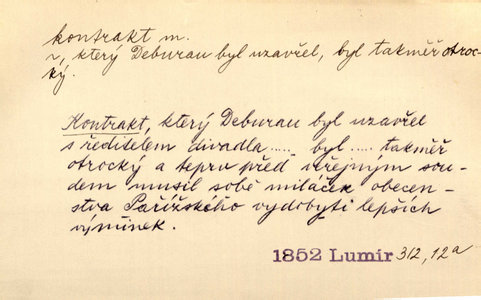 kontrakt m.
~, který Deburau byl uzavřel, byl takměř otroc-
ký.
Kontrakt, který Deburau byl uzavřel
s ředitelem divadla ..... byl ..... takměř
otrocký a teprv před veřejným sou-
dem musil sobě miláček obecen-
stva Pařížského vydobyti lepších
výmínek.
1852 Lumír 312, 12a